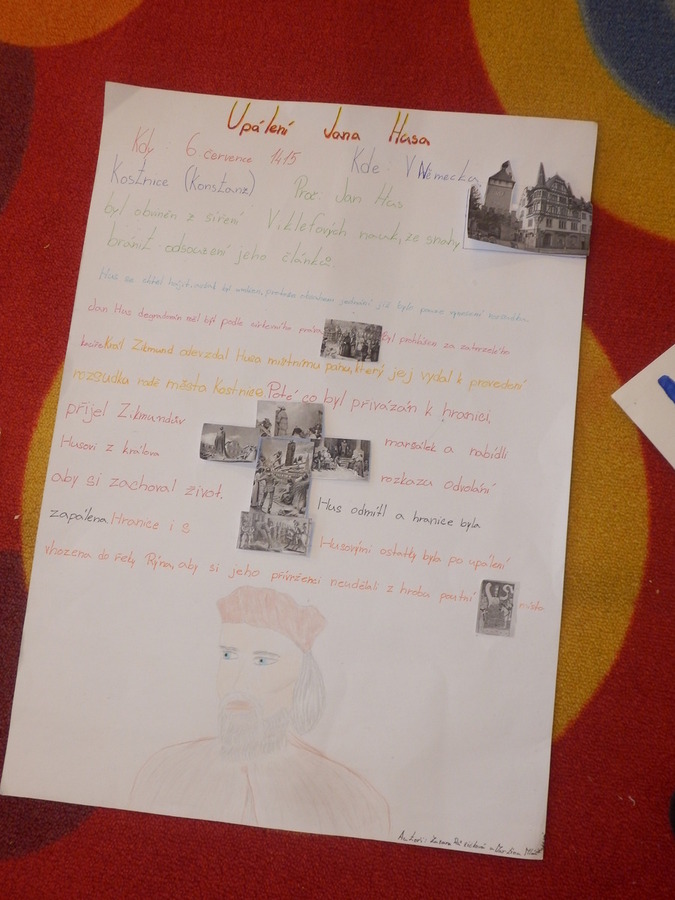 Upálení Jana Husa
Kdy: 6. července 1415 Kde: V Německu
Kostnice (Konstanz) Proč: Jan Hus
byl obviněn z šíření Viklefových nauk, ze snahy
bránit odsouzení jeho článků.
Hus se chtěl hájit, protože
Jan Hus degradován měl být podle práva Byl prohlášen za zatvrzelého
Král Zikmund odevzdal Husa místnímu pánu, který jej vydal k provedení
rozsudku radě města Kostnice. Poté co byl přivázán k hranici,
přijel Zikmundův maršálek a nabídl
Husovi z králova rozkazu odvolání
aby si zachoval život. Hus odmítl a hranice byla
zapálena Hranice i s Husovými ostatky byla po upálení
vhozena do řeky Rýna, aby si jeho přívrženci neudělali z hrobu poutní místo
Autoři: Zuzana